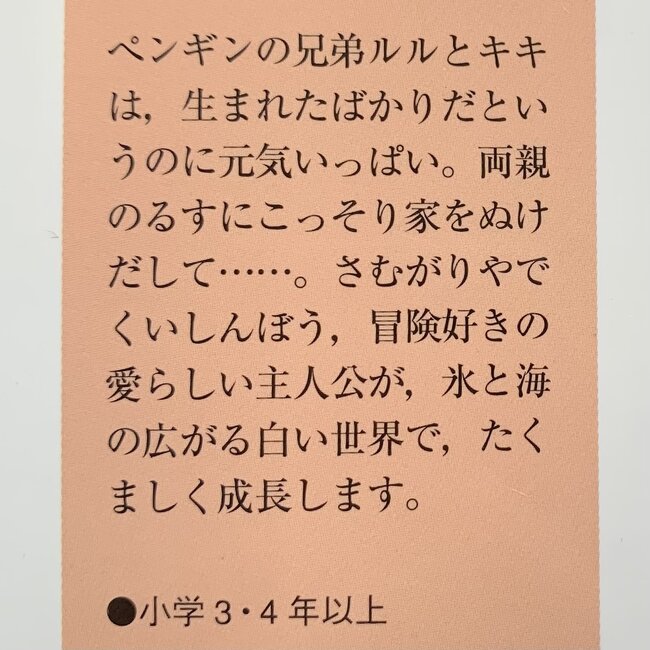 ペンギンの兄弟ルルとキキ
は，生まれたばかりだとい
うのに元気いっぱい。両親
のるすにこっそり家をぬけ
だして……。さむがりやで
くいしんぼう，冒険好きの
愛らしい主人公が，氷と海
の広がる白い世界で，たく
ましく成長します。
●小学3・4年以上